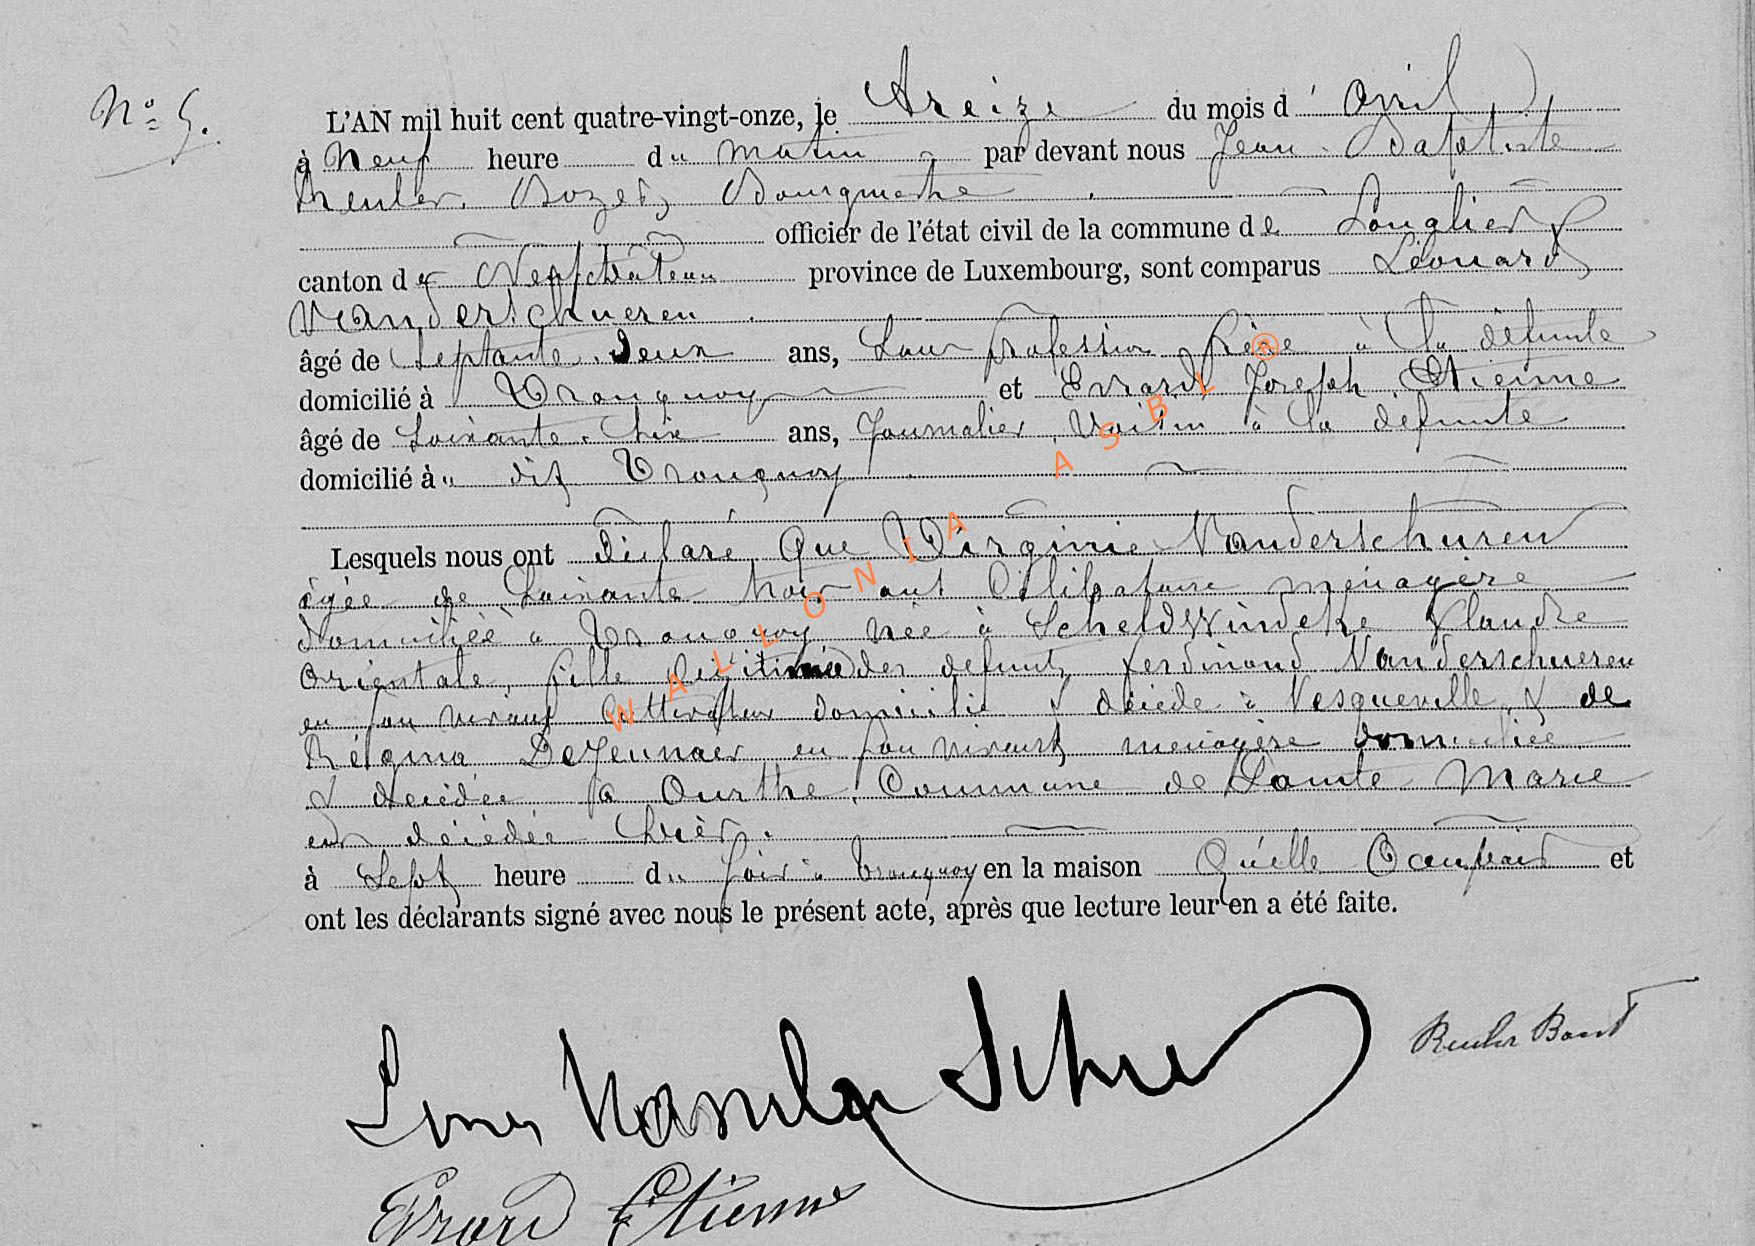 N° 5.
L'AN mil huit cent quatre-vingt-onze, le treize du mois d' Avril,
à Neuf heure du matin par devant nous Jean-Baptiste
Reuler, Bourgmestre
officier de l'état civil de la commune de Longlier
canton de Neufchâteau province de Luxembourg, sont comparus Léonard
Vanderschueren
âgé de Septante-deux ans, Sans profession frère à la défunte
domicilié à Tronquoy et Evrard Joseph Etienne
âgé de Soixante-six ans, Journalier, Voisin à la défunte
domicilié à u dit Tronquoy
Lesquels nous ont déclaré Que Virginie Vanderschuren
âgée de Soixante trois ans Célibataire ménagère
domiciliée à Tronquoy née à Scheldwindeke Flandre
orientale, fille légitime des defunts ferdinand Vanderschueren
en son vivant Cultivateur domicilié & décédé à Vesqueville & de
Régina DeJennaer en son vivant ménagère domiciliée
& décédée à Ourthe, Commune de Sainte Marie
est décédée hier.
à Sept heure du soir à Tronquoy en la maison Qu'elle Occupait et
ont les déclarants signé avec nous le présent acte, après que lecture leur en a été faite.
Reuler
Evrard Etienne
WALLONIA ASBL ®